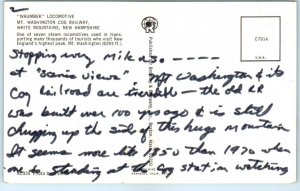 "WAUMBEK" LOCOMOTIVE
MT. WASHINGTON COG RAILWAY.
WHITE MOUNTAINS, NEW HAMPSHIRE
One of seven steam locomotives used in trans-
porting many thousands of tourists who visit New
England's highest peak, Mt. Washington (6293 ft.).
C7914
Stopping every Mike so - - - - -
at "scenic views". Mt Washington & its
Cog Railroad are incredible - the old RR
was built over 100 yrs ago & is still
chugging up the side of this huge mountain
It seems more like 1950 than 1970 when
standing at the Cog station watching